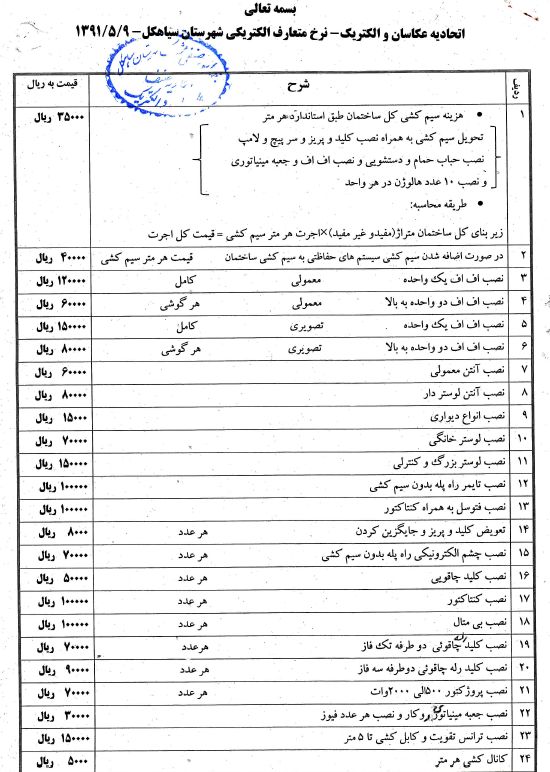 بسمه تعالی
اتحادیه عکاسان و الکتریک – نرخ متعارف الکتریکی شهرستان سیاهکل – ۱۳۹۱/۵/۹
ردیف شرح قیمت به ریال
۱ • هزینه سیم کشی کل ساختمان طبق استاندارد هر متر ۳۵۰۰۰ ریال
تحویل سیم کشی به همراه نصب کلید و پریز و سر پیچ و لامپ
نصب حباب حمام و دستشویی و نصب اف اف و جعبه مینیاتوری
و نصب ۱۰ عدد هالوژن در هر واحد
• طریقه محاسبه:
زیر بنای کل ساختمان متراژ(مفیدو غیر مفید)×اجرت هر متر سیم کشی = قیمت کل اجرت
۲ در صورت اضافه شدن سیم کشی سیستم های حفاظتی به سیم کشی ساختمان قیمت هر متر سیم کشی ۴۰۰۰۰ ریال
۳ نصب اف اف یک واحده معمولی کامل ۱۲۰۰۰۰ ریال
۴ نصب اف اف دو واحده به بالا معمولی هر گوشی ۶۰۰۰۰ ریال
۵ نصب اف اف یک واحده تصویری کامل ۱۵۰۰۰۰ ریال
۶ نصب اف اف دو واحده به بالا تصویری هر گوشی ۸۰۰۰۰ ریال
۷ نصب آنتن معمولی ۶۰۰۰۰ ریال
۸ نصب آنتن لوستر دار ۸۰۰۰۰ ریال
۹ نصب انواع دیواری ۱۵۰۰۰ ریال
۱۰ نصب لوستر خانگی ۷۰۰۰۰ ریال
۱۱ نصب لوستر بزرگ و کنترلی ۱۵۰۰۰۰ ریال
۱۲ نصب تایمر راه پله بدون سیم کشی ۱۰۰۰۰۰ ریال
۱۳ نصب فتوسل به همراه کنتاکتور ۱۰۰۰۰۰ ریال
۱۴ تعویض کلید و پریز و جایگزین کردن هر عدد ۸۰۰۰ ریال
۱۵ نصب چشم الکترونیکی راه پله بدون سیم کشی هر عدد ۷۰۰۰۰ ریال
۱۶ نصب کلید چاقویی هر عدد ۵۰۰۰۰ ریال
۱۷ نصب کنتاکتور هر عدد ۱۰۰۰۰۰ ریال
۱۸ نصب بی متال هر عدد ۱۰۰۰۰۰ ریال
۱۹ نصب کلید رله چاقوئی دو طرفه تک فاز هرعدد ۷۰۰۰۰ ریال
۲۰ نصب کلید رله چاقوئی دوطرفه سه فاز هر عدد ۹۰۰۰۰ ریال
۲۱ نصب پروژکتور ۵۰۰الی ۲۰۰۰وات هر عدد ۷۰۰۰۰ ریال
۲۲ نصب جعبه مینیاتوری روکار و نصب هر عدد فیوز ۳۰۰۰۰ ریال
۲۳ نصب ترانس تقویت و کابل کشی تا ۵ متر ۱۵۰۰۰۰ ریال
۲۴ کانال کشی هر متر ۵۰۰۰ ریال